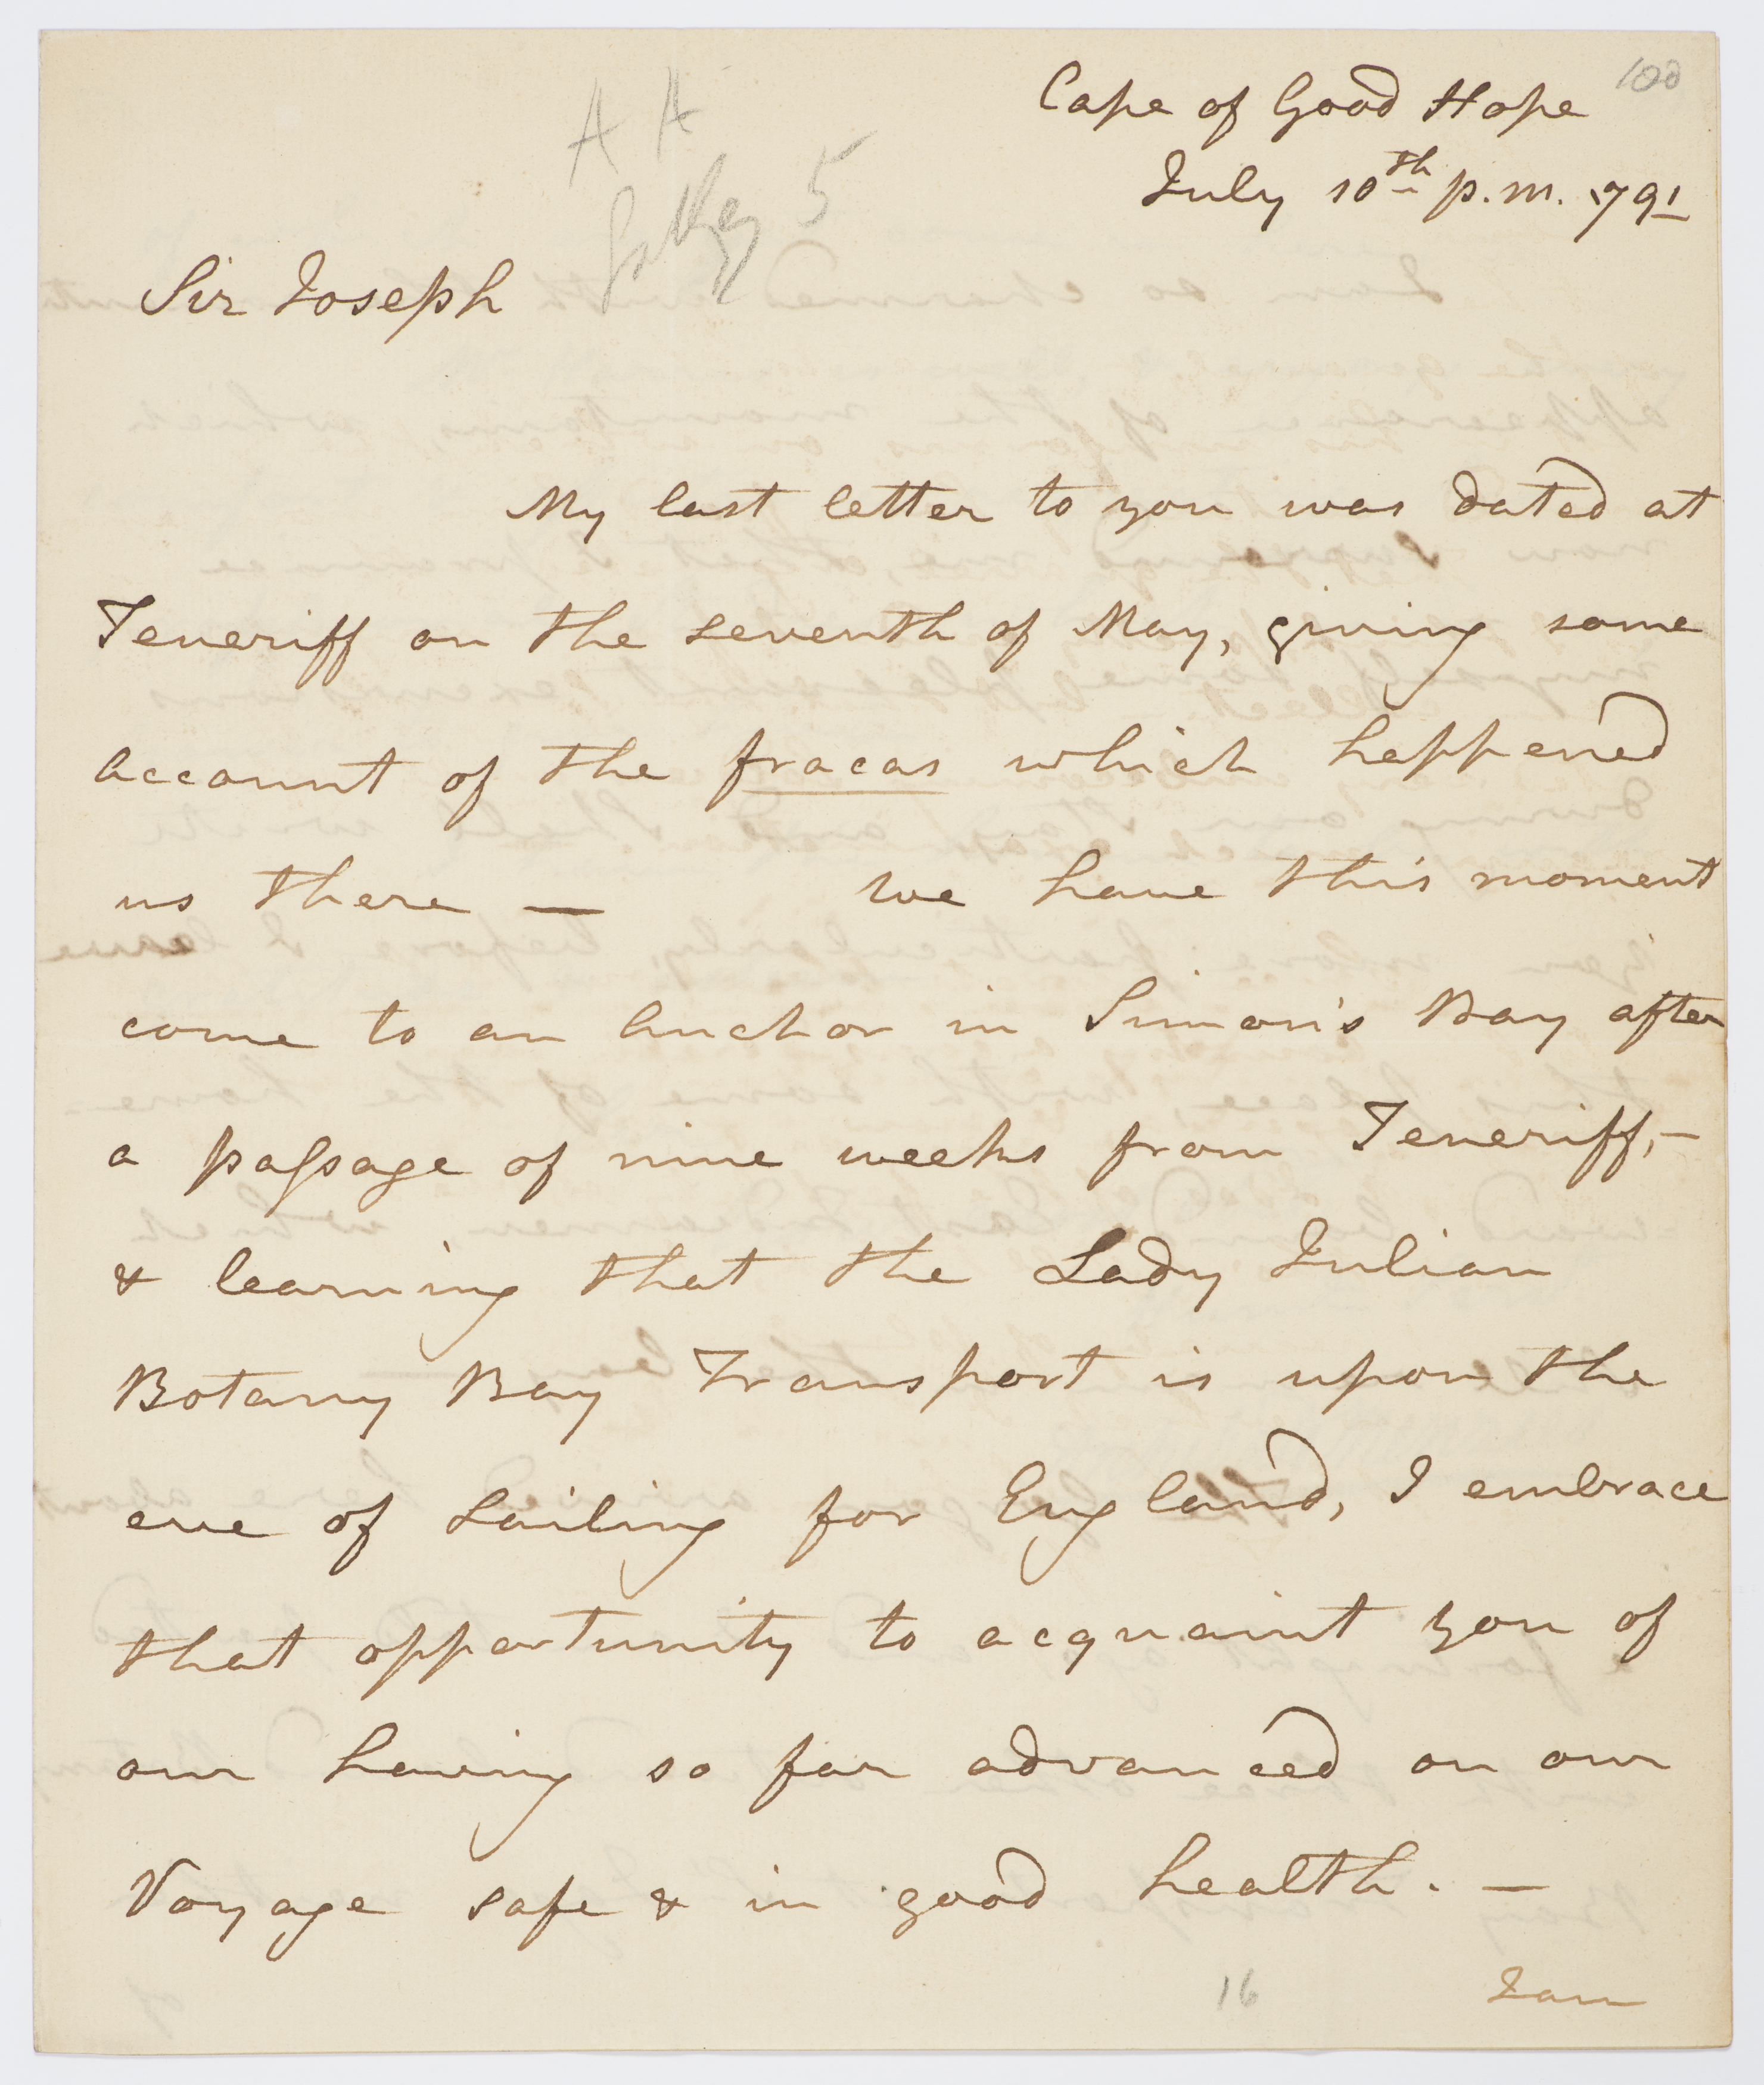 100
Cape of Good Hope
July 10th p.m. 1791
A A
5
Sir Joseph
My last letter to you was dated at
Teneriff on the seventh of May, giving some
account of the fracas which happened
us there —   We have this moment
come to an Anchor in Simon's Bay after
a paſsage of nine weeks from Teneriff, —
& learning that the Lady Julian
Botany Bay Transport is upon the
eve of Sailing for England, I embrace
that opportunity to acquaint you of
our having so far advanced on our
Voyage safe & in good health. —
16
I am